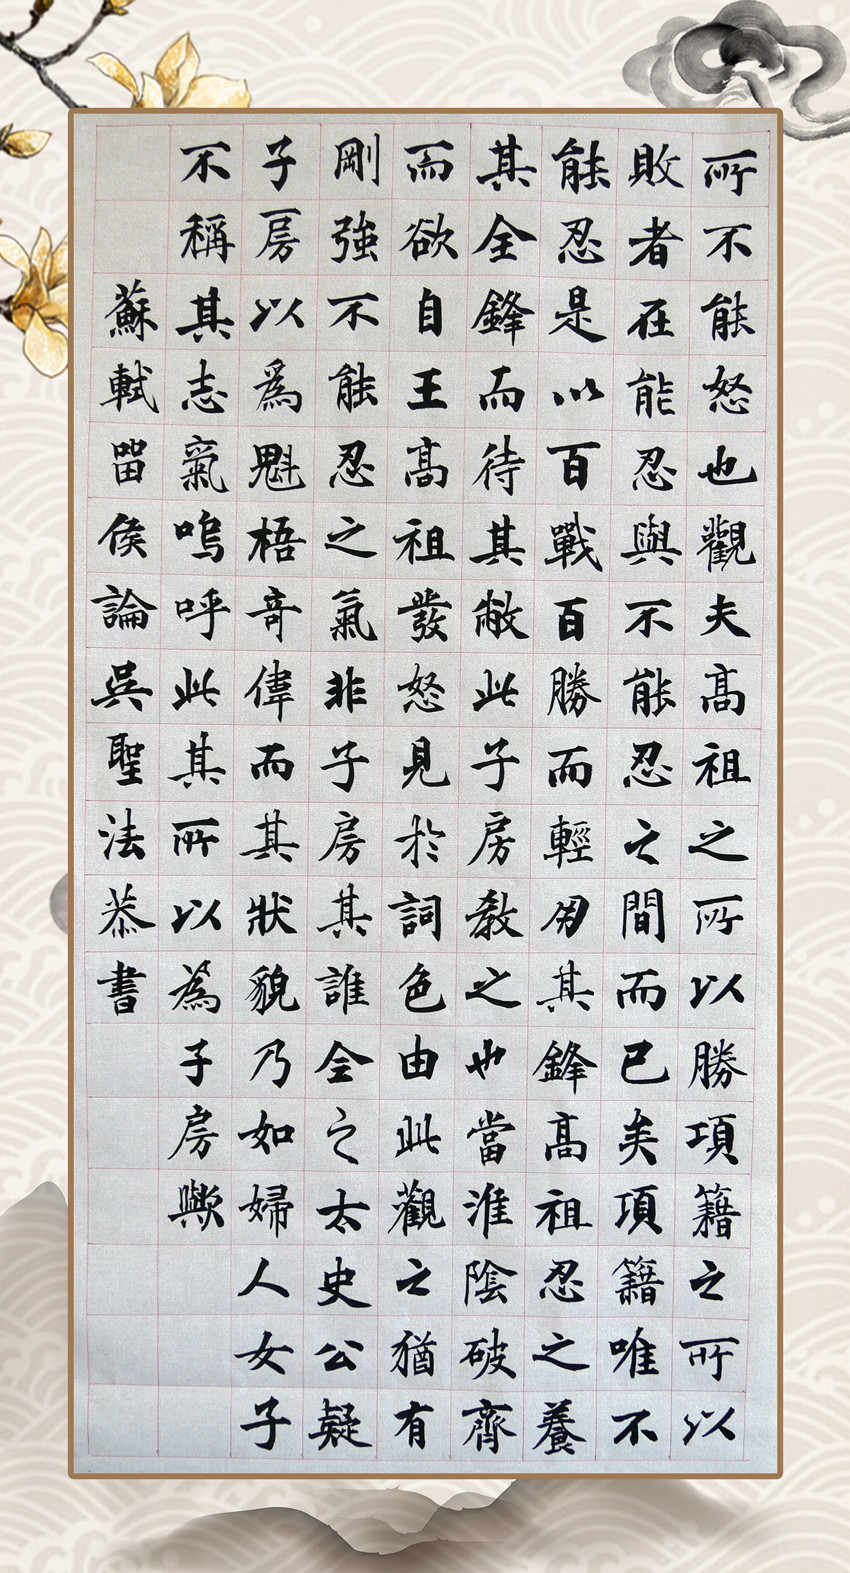 所不能怒也觀夫高祖之所以勝項籍之所以
敗者在能忍與不能忍之間而已矣項籍唯不
能忍是以百戰百勝而輕用其鋒高祖忍之養
其全鋒而待其敝此子房教之也當淮陰破齊
而欲自王高祖發怒見於詞色由此觀之猶有
剛強不能忍之氣非子房其誰全之太史公疑
子房以爲魁梧奇偉而其狀貌乃如婦人女子
不稱其志氣嗚呼此其所以為子房歟
蘇軾留侯論吳聖法恭書